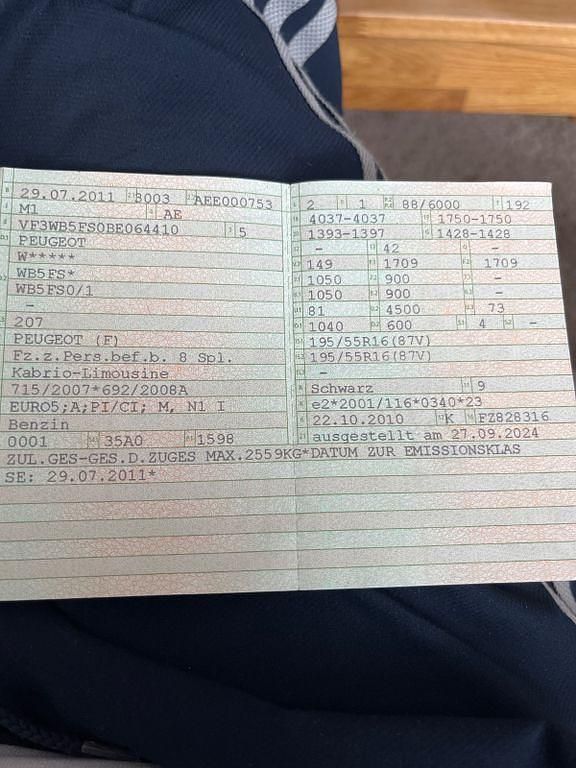 29.07.2011 3003 AEE000753
M1 AE
VF3WB5FS0BE064410 5
PEUGEOT
W*****
WB5FS*
WB5FS0/1
-
207
PEUGEOT (F)
Fz.z.Pers.bef.b. 8 Spl.
Kabrio-Limousine
715/2007*692/2008A
EURO5;A;PI/CI; M, N1 I
Benzin
0001 35A0 1598
2 1 88/6000 192
4037-4037 1750-1750
1393-1397 1428-1428
- 42 -
149 1709 1709
1050 900 -
1050 900 -
81 4500 73
1040 600 4 -
195/55R16(87V)
195/55R16(87V)
-
Schwarz 9
e2*2001/116*0340*23
22.10.2010 K FZ828316
ausgestellt am 27.09.2024
ZUL.GES-GES.D.ZUGES MAX.2559KG*DATUM ZUR EMISSIONSKLAS
SE: 29.07.2011*